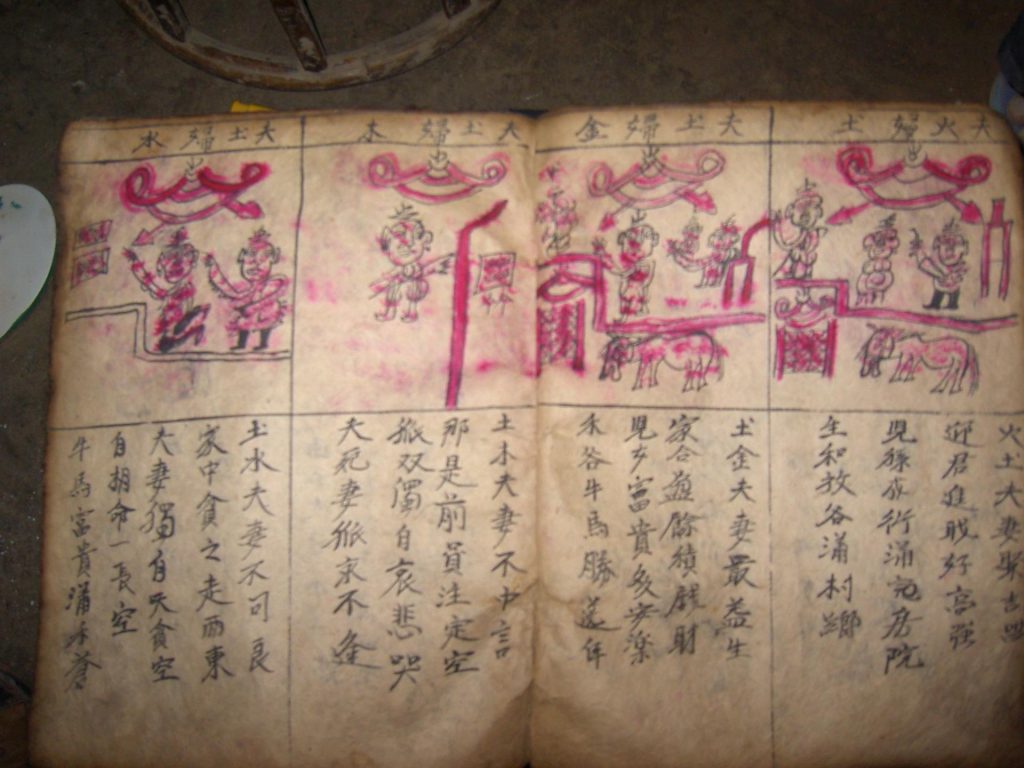 夫火婦土
火土夫妻聚吉
迎君進好高強
児孫成行滿房院
生和牧谷滿村鄉
夫土婦金
土金夫妻最益生
家合益餘積錢財
見夕富貴多安楽
禾谷牛馬勝年
夫土婦木
土木夫妻不中言
那是前員注定空
孤双濁自哀悲哭
夫死妻孤永不逢
夫土婦水
土水夫妻不可良
家中貪之走西東
夫妻獨自天貪空
自胡命一長空
牛馬富貴滿禾蒼